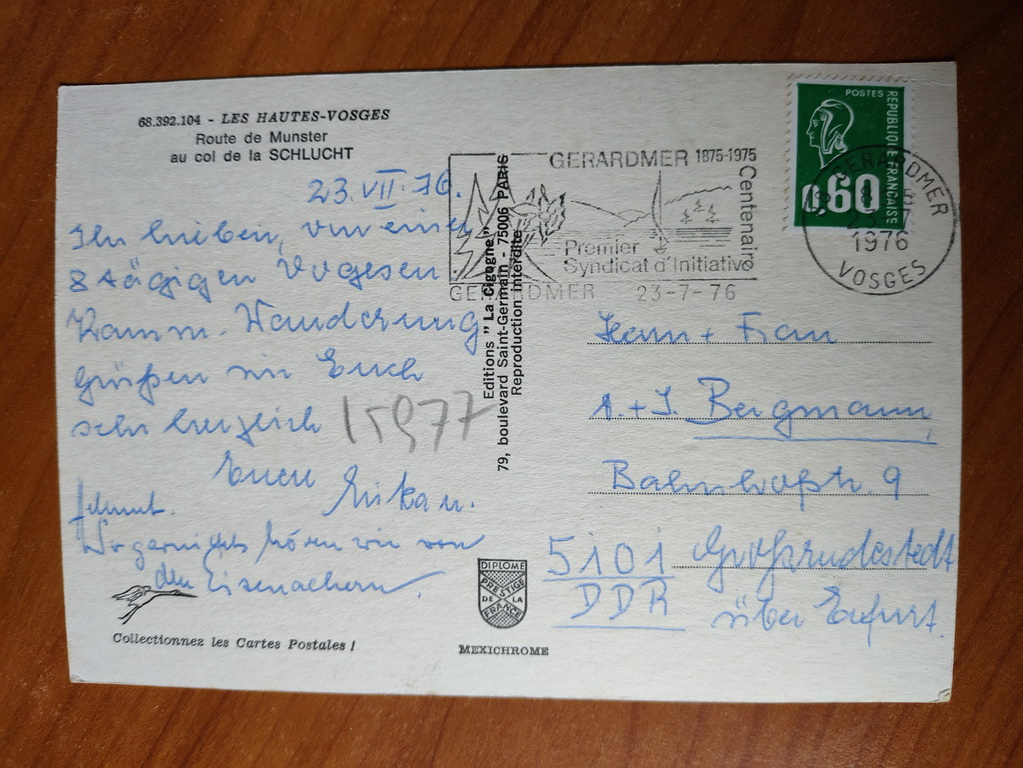 68.392.104 - LES HAUTES-VOSGES
Route de Munster
au col de la SCHLUCHT
23.VII.76.
Ihr Lieben, von einer
8 tägigen Vogesen
Kamm-Wanderung
grüßen wir Euch
sehr herzlich
15977
Eure
Erika u.
Helmut.
gernichts hören wir von
den Eisenachern.
Collectionnez les Cartes Postales !
Editions "La Cigogne"
79, boulevard Saint-Germain - 75006 PARIS
Reproduction interdite
DIPLOME
PRESTIGE
DE LA
FRANCE
MEXICHROME
GERARDMER 1875-1975
Centenaire
Premier
Syndicat d'Initiative
GERARDMER 23-7-76
POSTES
REPUBLIQUE FRANÇAISE
0,60
GERARDMER
1976
VOSGES
Herrn + Frau
A.+J. Bergmann,
Bahnhofstr. 9
5101 Großrudestedt
DDR über Erfurt.